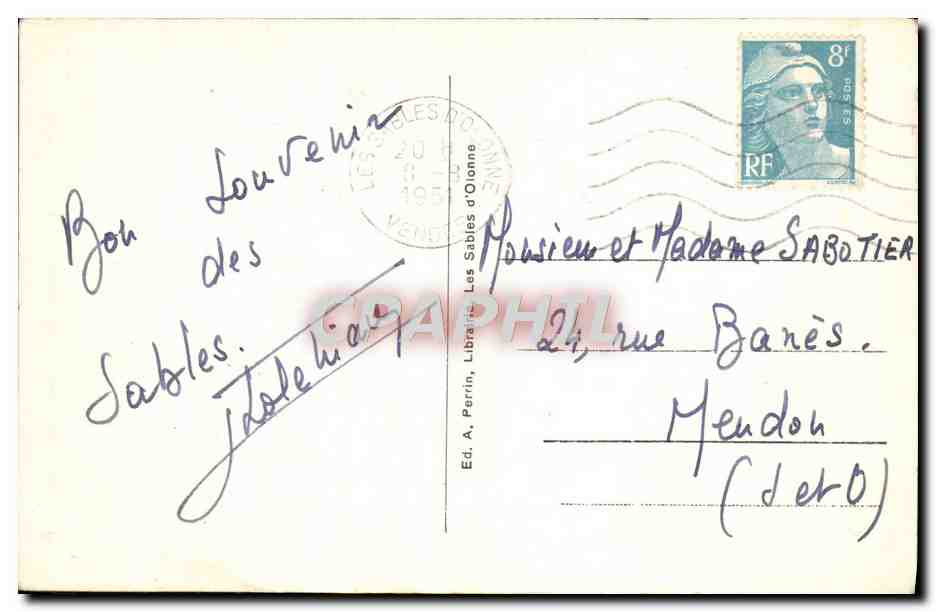 Bon Souvenir
des
Sables.
LES SABLES D'OLONNE
20 H
6 - 8
1951
VENDÉE
Ed. A. Perrin, Librairie, Les Sables d'Olonne
8F
POSTES
RF
Monsieur et Madame SABOTIER
24, rue Banès.
Meudon
(S et O)
CPAPHIL